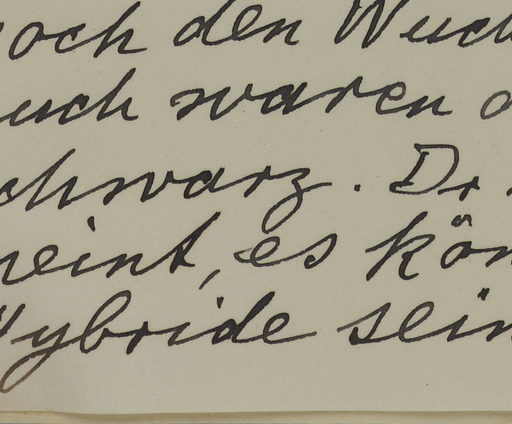 och den Wuch
uch waren d
chwarz. Dr
meint, es kön
Hybride sein